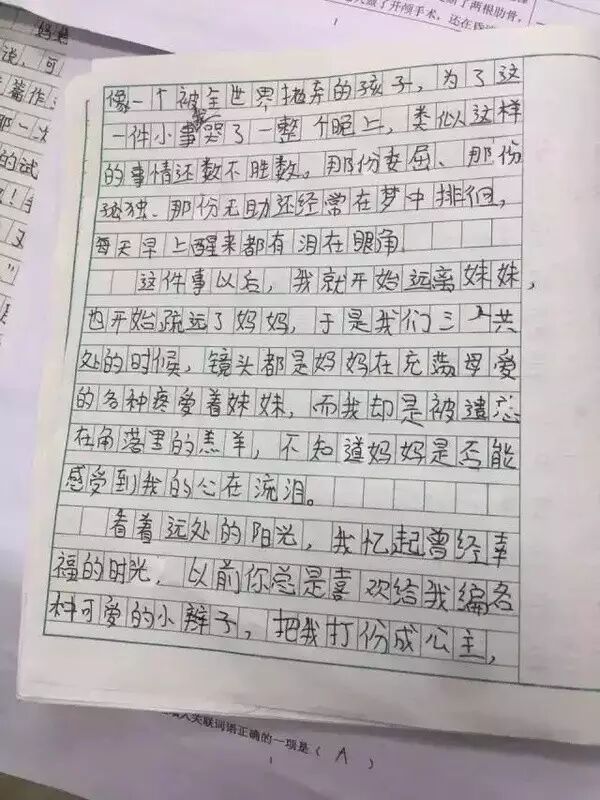 了两根肋骨,
了开颅手术,还在昏
妈
说,可
著作:
那一次
的试
像一个被全世界抛弃的孩子,为了这
一件小事我哭了一整个晚上,类似这样
的事情还数不胜数。那份委屈、那份
孤独、那份无助还经常在梦中排徊,
每天早上醒来都有泪在眼角
这件事以后,我就开始远离妹妹,
也开始疏远了妈妈,于是我们三人共
处的时候,镜头都是妈妈在充满母爱
的各种疼爱着妹妹,而我却是被遗忘
在角落里的羔羊,不知道妈妈是否能
感受到我的心在流泪。
看着远处的阳光,我忆起曾经幸
福的时光,以前你总是喜欢给我编各
种可爱的小辫子,把我打份成公主,
入关联词语正确的一项是( A )